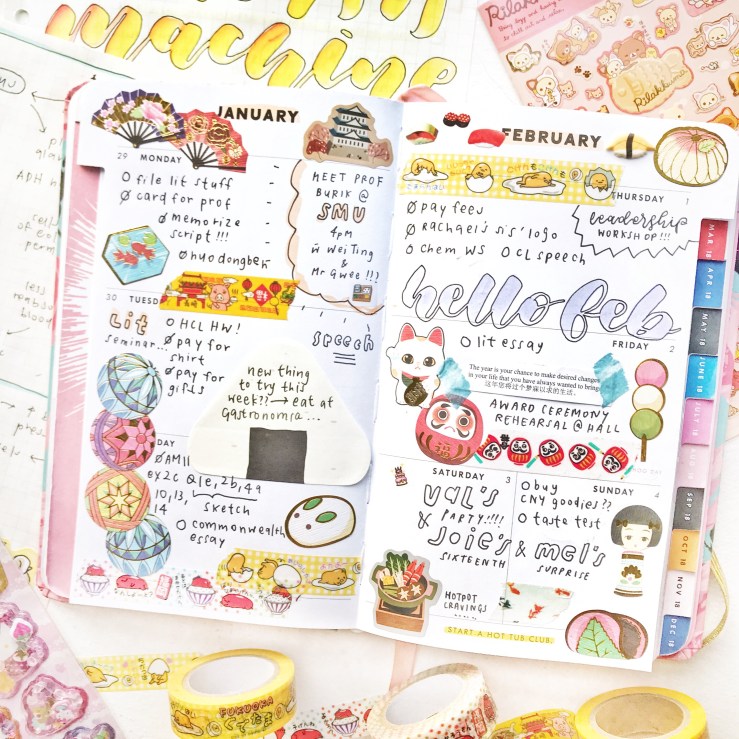 machine
Rilakkuma
JANUARY
29 MONDAY
O file lit stuff
Ø card for prof
Ø memorize
script!!!
Ø huo dongben
MEET PROF
BURIK @
SMU
4pm
w̄ Wei Ting
&
Mr Gwee!!?
30 TUESD
Lit
seminar...
O HCL HW!
Ø pay for
shirt
Ø pay for
gifts
speech
new thing
to try this
week?? → eat at
Gastronomia...
DAY
Ø AM
ex2c Q1e, 2b, 4a
10, 13,
14
sketch
O commonwealth
essay
FEBRUARY
THURSDAY 1
O pay fees
Ø Rachael's sis' logo
O Chem WS O CL speech
leadership
WORKSHOP!!!
hello feb
FRIDAY 2
O lit essay
The year is your chance to make desired changes
in your life that you have always wanted to bring.
AWARD CEREMONY
REHEARSAL @ HALL
福
SATURDAY 3
VAL'S
PARTY!!!!
& JOIE'S
SIXTEENTH
SUNDAY 4
O buy
CNY goodies??
O taste test
& mel's
SURPRISE
HOTPOT
CRAVINGS
START A HOT TUB CLUB.
MAR 18
APR 18
MAY 18
JUNE 18
JULY 18
AUG 18
SEP 18
OCT 18
NOV 18
DEC 18
FUKUOKA
ぐでたま